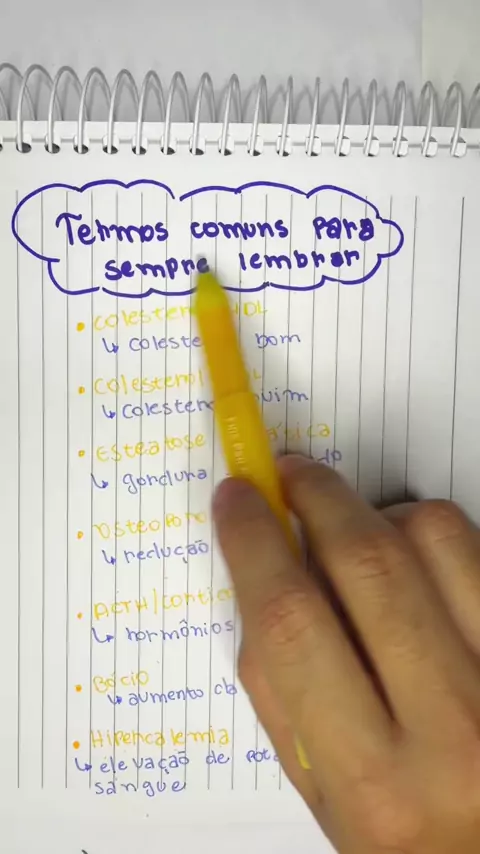 Termos comuns para
sempre lembrar
• Colesterol HDL
↳ colesterol bom
• Colesterol
↳ colesterol ruim
• Esteatose
↳ gordura
•
↳ redução
• ACTH/
↳ hormônios
• Bócio
↳ aumento da
• Hipercalemia
↳ elevação de
sangue